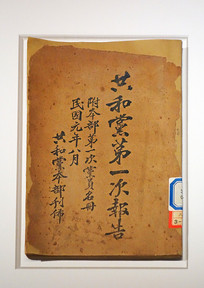 共和黨第一次報告
附本部第一次黨員名冊
民國元年八月
共和黨本部刊佈